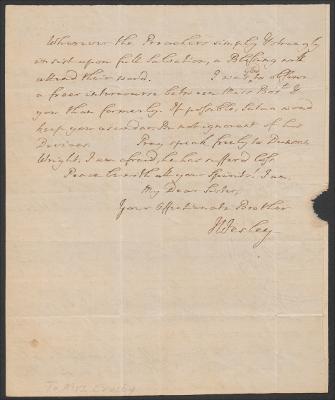 Wherever the Preachers simply & strongly
insist upon full Salvation, a Blessing will
attend their word. I was glad to observe
a freer intercourse between Miss Bos.t &
you than formerly. If possible, Satan woud
keep you asunder. Be not ignorant of his
Devices. Pray speak freely to Duncan
Wright. I am afraid, he has sufferd loss.
Peace be with all your Spirits! I am,
My Dear Sister,
Your Affectionate Brother
JWesley
To Mrs. Crosby